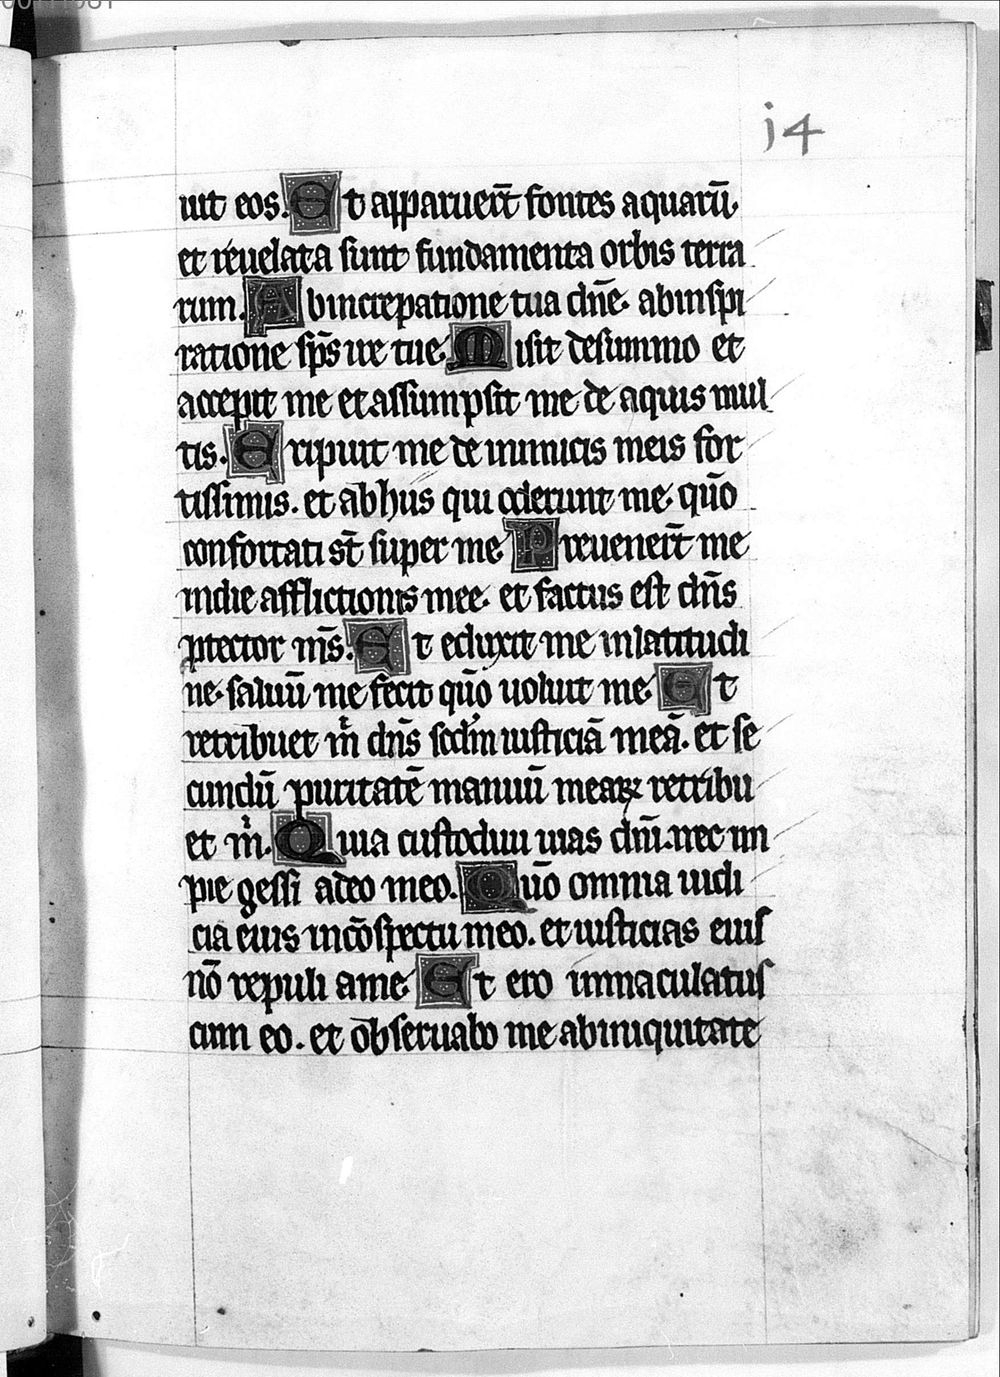 i4
uit eos. Et apparuer̄t fontes aquarū.
et reuelata sunt fundamenta orbis terra
rum. Abincrepatione tua dn̄e. abinspi
ratione sp̄s ire tue. Misit desummo et
accepit me et assumpsit me de aquis mul
tis. Eripuit me de inimicis meis for
tissimis. et abhiis qui oderunt me. qūo
confortati st̄ super me. Preuener̄t me
indie afflictionis mee. et factus est dn̄s
ꝓtector m̄s. Et eduxit me inlatitudi
ne. saluū me fecit qūo uoluit me. Et
retribuet m̄ dn̄s scdm̄ iusticiā meā. et se
cundū puritatē manuū mearꝝ retribu
et m̄. Quia custodiui uias dn̄i. nec im
pie gessi adeo meo. Qūo omnia iudi
cia eius incōspectu meo. et iusticias eius
nō repuli ame. Et ero immaculatus
cum eo. et obseruabo me abiniquitate